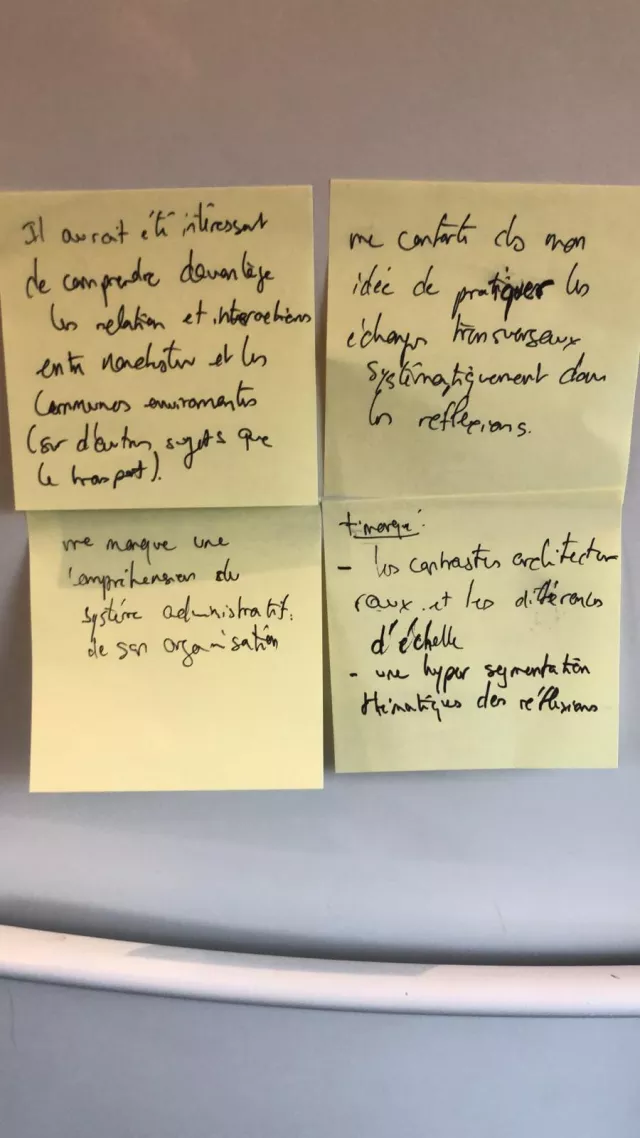 Il aurait été intéressant
de comprendre davantage
les relation et interactions
entre manchester et les
Communes environnantes
(sur d'autres sujets que
le transport).
me conforte ds mon
idée de pratiquer les
échanges transversaux
systématiquement dans
les reflexions.
me manque une
compréhension du
système administratif,
de son organisation
+ marqué:
- les contrastes architectu-
raux et les différences
d'échelle
- une hyper segmentation
thématiques des réflexions